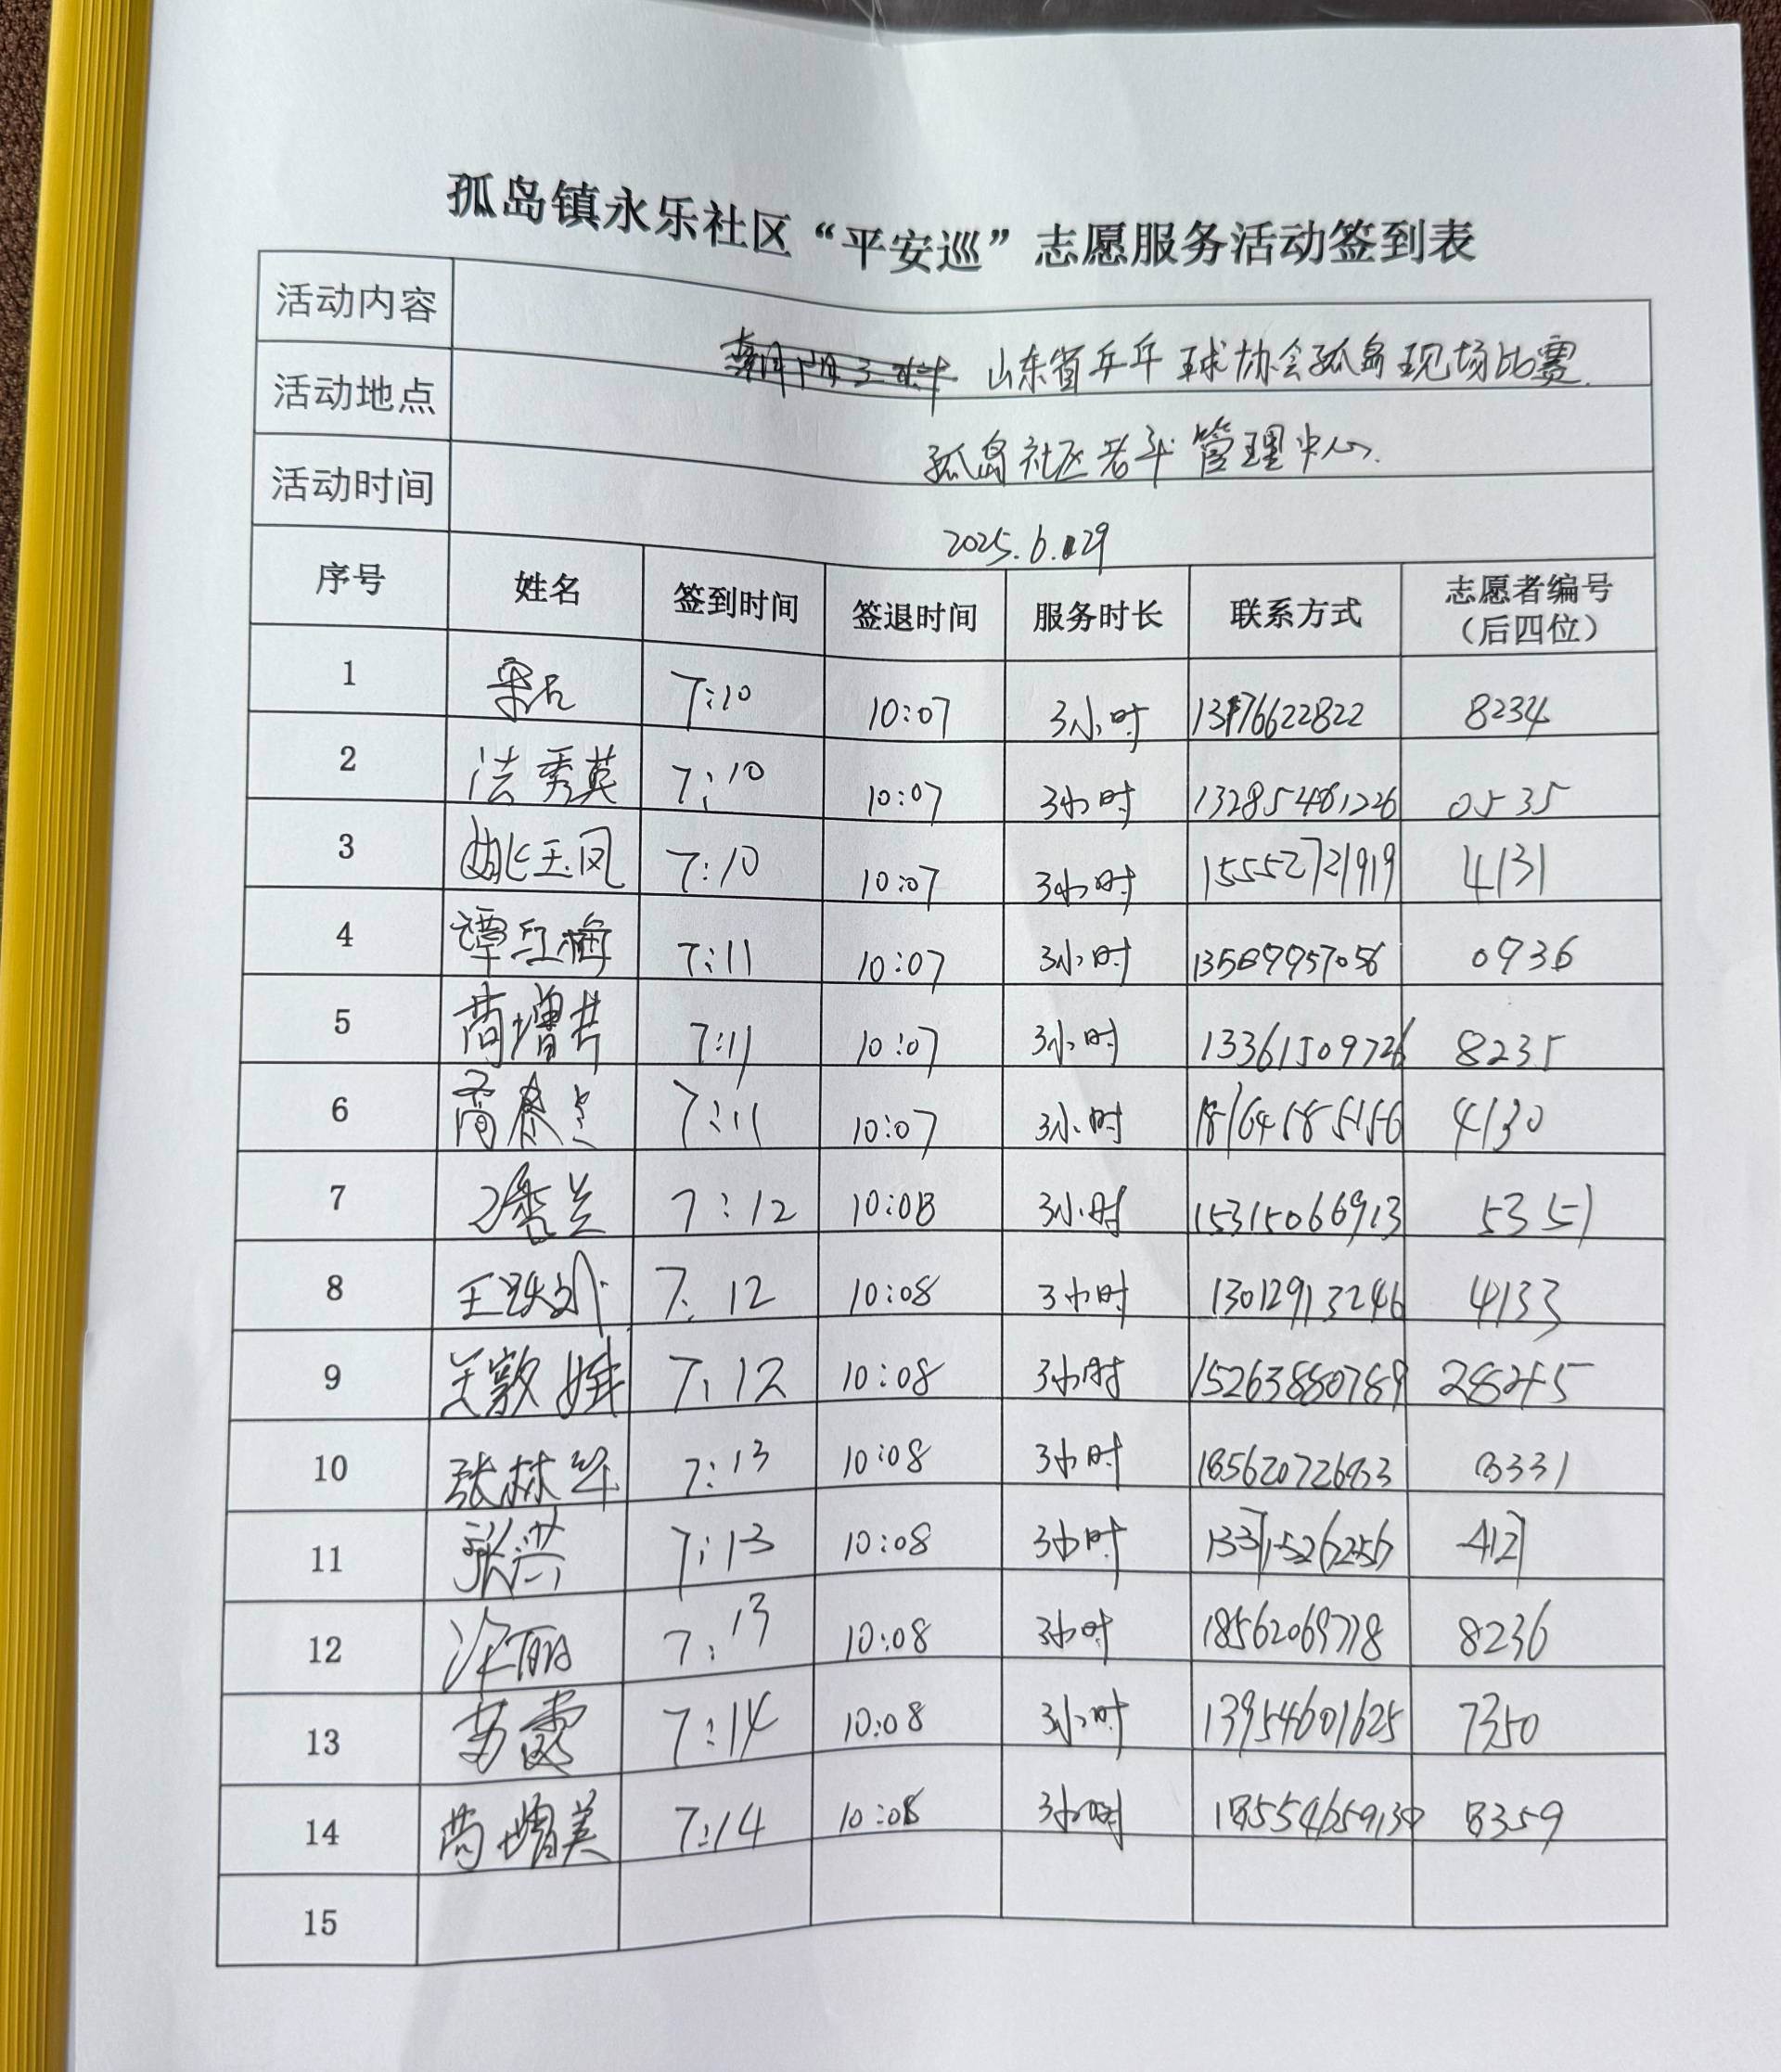 孤岛镇永乐社区“平安巡”志愿服务活动签到表
活动内容 山东省乒乓球协会孤岛现场比赛.
活动地点 孤岛社区老年管理中心.
活动时间 2025.6.29
序号 姓名 签到时间 签退时间 服务时长 联系方式 志愿者编号（后四位）
1 7:10 10:07 3小时 13176622822 8234
2 法秀英 7:10 10:07 3小时 13285481226 0535
3 姚玉凤 7:10 10:07 3小时 15552721919 4131
4 谭红梅 7:11 10:07 3小时 13589957056 0936
5 商增芹 7:11 10:07 3小时 13361509726 8235
6 7:11 10:07 3小时 4130
7 7:12 10:08 3小时 15315066913 5351
8 7:12 10:08 3小时 13012913246 4133
9 王敦娥 7:12 10:08 3小时 15263880789 28245
10 7:13 10:08 3小时 18562072683 8331
11 张兴 7:13 10:08 3小时 4121
12 7:13 10:08 3小时 18562069778 8236
13 苗霞 7:14 10:08 3小时 13954601625 7350
14 商增美 7:14 10:08 3小时 18554659139 8359
15